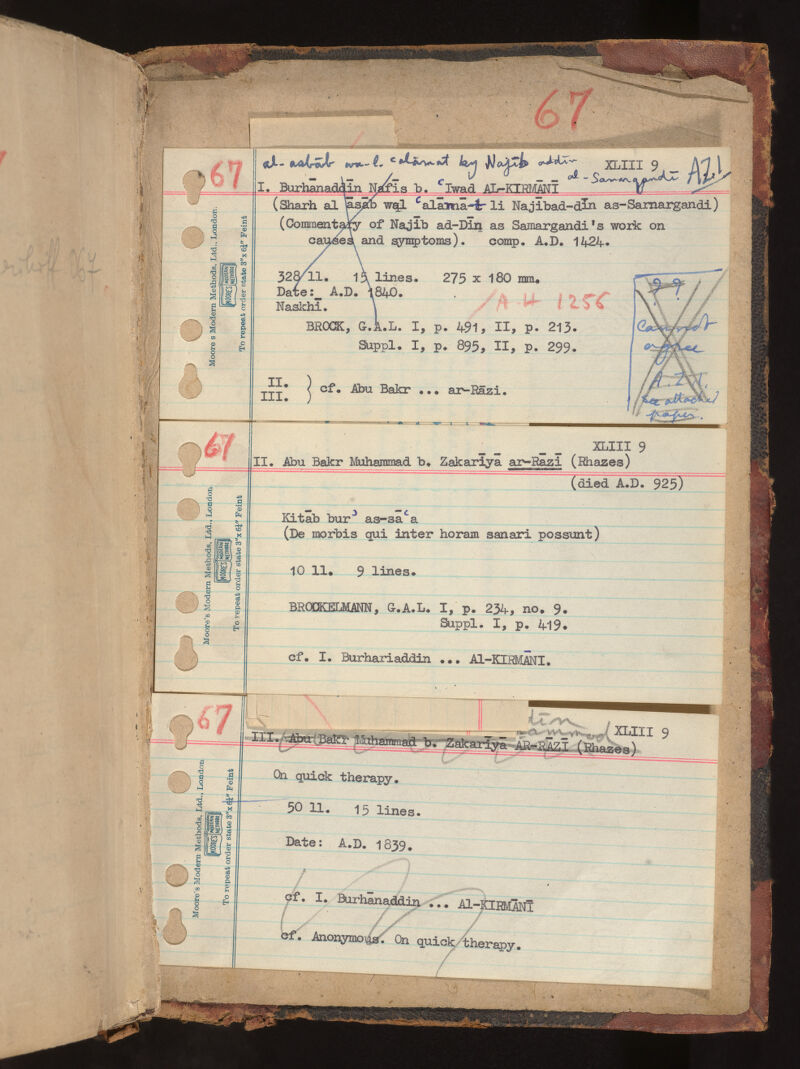 67
67
al-asbāb wa-l-ʿalāmāt by Najīb addīn
al-Samarqandī AZI
XLIII 9
I. Burhānaddīn Nafīs b. ʿIwad AL-KIRMĀNĪ
(Sharh al āsāb wal ʿalāmā-t li Najībad-dīn as-Samargandi)
(Commentary of Najīb ad-Dīn as Samargandi's work on
causes and symptoms). comp. A.D. 1424.
328 ll. 15 lines. 275 x 180 mm.
Date: A.D. 1840.
/ A H 1256
Naskhī.
BROCK, G.A.L. I, p. 491, II, p. 213.
Suppl. I, p. 895, II, p. 299.
II.
III. } cf. Abu Bakr ... ar-Rāzi.
? ?
Cannot
agree
A.Z.I.
see attached
paper.
Moore's Modern Methods, Ltd., London.
To repeat order state 3"x 6¼" Feint
67
XLIII 9
II. Abu Bakr Muhammad b. Zakarīyā ar-Rāzī (Rhazes)
(died A.D. 925)
Kitāb burʾ as-sāʿa
(De morbis qui inter horam sanari possunt)
10 ll. 9 lines.
BROCKELMANN, G.A.L. I, p. 234, no. 9.
Suppl. I, p. 419.
cf. I. Burhariaddin ... Al-KIRMĀNI.
Moore's Modern Methods, Ltd., London
To repeat order state 3"x 6¼" Feint
67
dīn
ammad
XLIII 9
III. Abu Bakr Muhammad b. Zakarīyā AR-RĀZĪ (Rhazes)
On quick therapy.
50 ll. 15 lines.
Date: A.D. 1839.
cf. I. Burhānaddin ... Al-KIRMĀNĪ
cf. Anonymous. On quick therapy.
Moore's Modern Methods, Ltd., London
To repeat order state 3"x 6¼" Feint